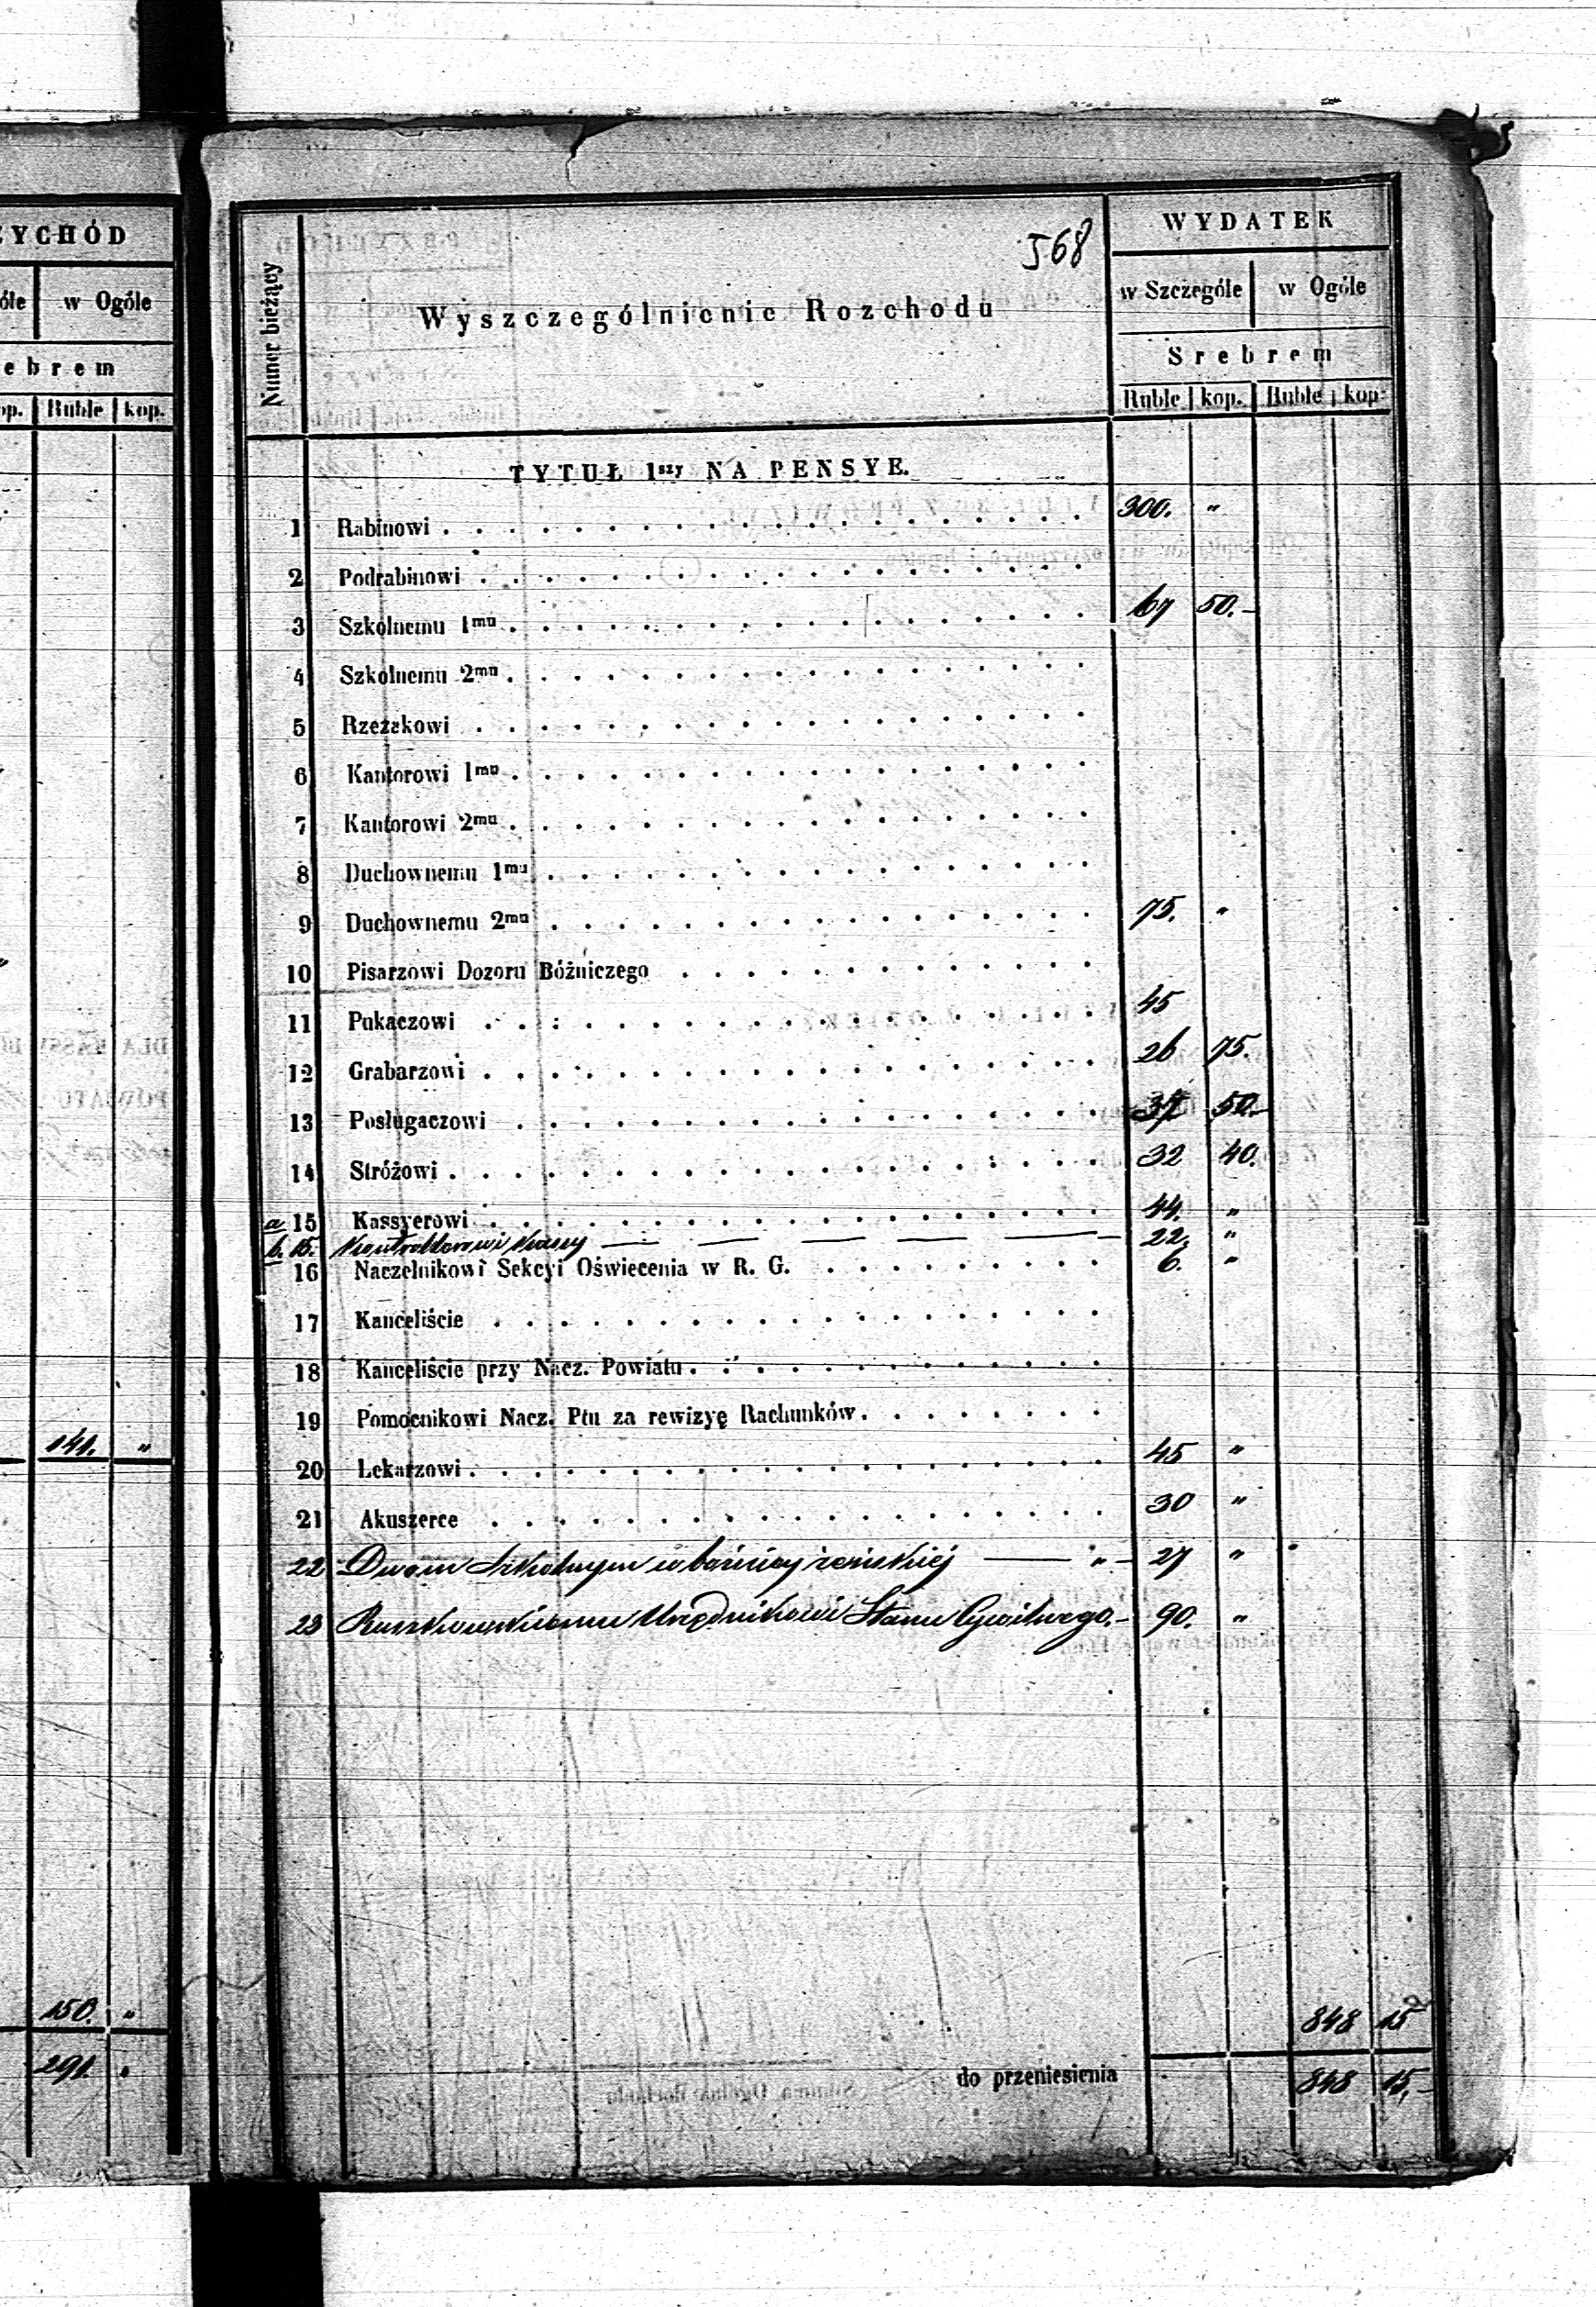 ZYCHÓD
óle w Ogóle
ebrem
op. Ruble kop.
141. "
150. "
291. "
568
Numer bieżący
Wyszczególnienie Rozchodu
WYDATEK
w Szczególe w Ogóle
Srebrem
Ruble kop. Ruble kop.
TYTUŁ 1szy NA PENSYE.
1 Rabinowi 300. "
2 Podrabinowi
3 Szkólnemu 1mu 67 50.-
4 Szkólnemu 2mu
5 Rzezakowi
6 Kantorowi 1mu
7 Kantorowi 2mu
8 Duchownemu 1mu
9 Duchownemu 2mu 75. "
10 Pisarzowi Dozoru Bóżniczego
11 Pukaczowi 45
12 Grabarzowi 26 75.
13 Posługaczowi 37 50.
14 Stróżowi 32 40.
a 15 Kassyerowi 44. "
b. 15. Kontrollerowi Kassy 22. "
16 Naczelnikowi Sekcyi Oświecenia w R. G. 6. "
17 Kanceliście
18 Kanceliście przy Nacz. Powiatu
19 Pomocnikowi Nacz. Ptu za rewizyę Rachunków
20 Lekarzowi 45 "
21 Akuszerce 30 "
22 Dwom Szkolnym w bóżnicy żeńskiej " 27 "
23 Urzędnikowi Stanu Cywilnego.- 90. "
848 15
do przeniesienia 848 15.-